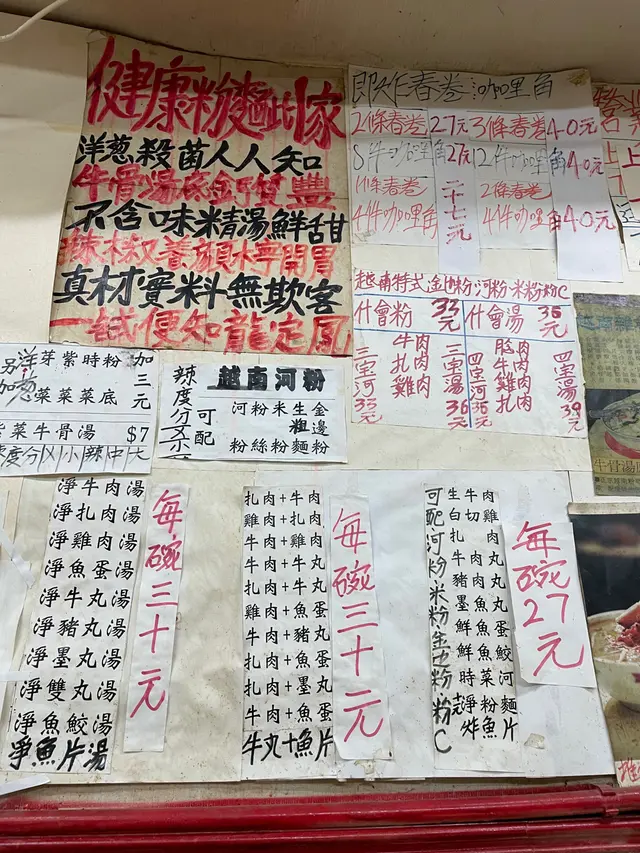 健康粉麵此家
洋葱殺菌人人知
牛骨湯底金的貨豐
不含味精湯鮮甜
辣椒養顏味寧開胃
真材實料無欺客
一試便知龍定鳳
即炸春卷咖哩角
2條春卷 27元 3條春卷 40元
8牛咖哩角 27元 12牛咖哩角 40元
11條春卷 二十七元 2條春卷
4件咖哩角 4件咖哩角 40元
越南特式金邊粉河粉米粉粉C
什會粉 33元 什會湯 36元
三宝河 33元
牛肉
扎肉
雞肉
三宝湯 36元
四宝河 36元
牛肉
雞肉
扎肉
四宝湯 39元
另加洋葱
芽菜
紫菜
時菜
粉底
加三元
紫菜牛骨湯 $7
辣度分X小辣中大
辣度分X小
可配
越南河粉
河粉米生金
粗邊
粉絲粉麵粉
淨牛肉湯
淨扎肉湯
淨雞肉湯
淨魚蛋湯
淨牛丸湯
淨豬丸湯
淨墨丸湯
淨雙丸湯
淨魚鮫湯
淨魚片湯
每碗三十元
扎肉+牛肉
雞肉+扎肉
牛肉+雞肉
牛肉+牛丸
扎肉+牛丸
雞肉+魚蛋
牛肉+豬丸
扎肉+魚蛋
扎肉+墨丸
牛肉+魚蛋
牛丸+魚片
每碗三十元
可配河粉米粉金边粉粉C
生牛肉
牛切雞
白扎肉
牛肉丸
豬肉丸
墨魚丸
鮮魚蛋
鮮魚鮫
時菜河
淨粉麵
炸魚片
每碗27元
牛骨湯